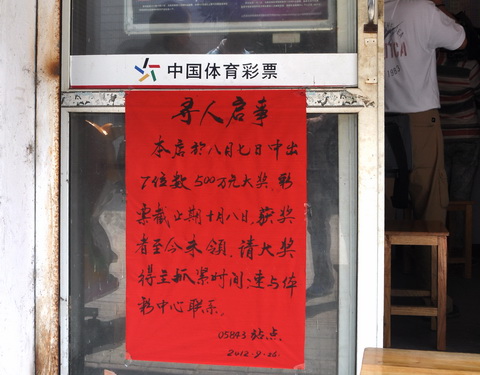 中国体育彩票
寻人启事
本店於八月七日中出
7位数500万元大奖,彩
票截止期十月八日,获奖
者至今未領,请大奖
得主抓紧时间,速与体
彩中心联系。
05843站点
2012.9.26.